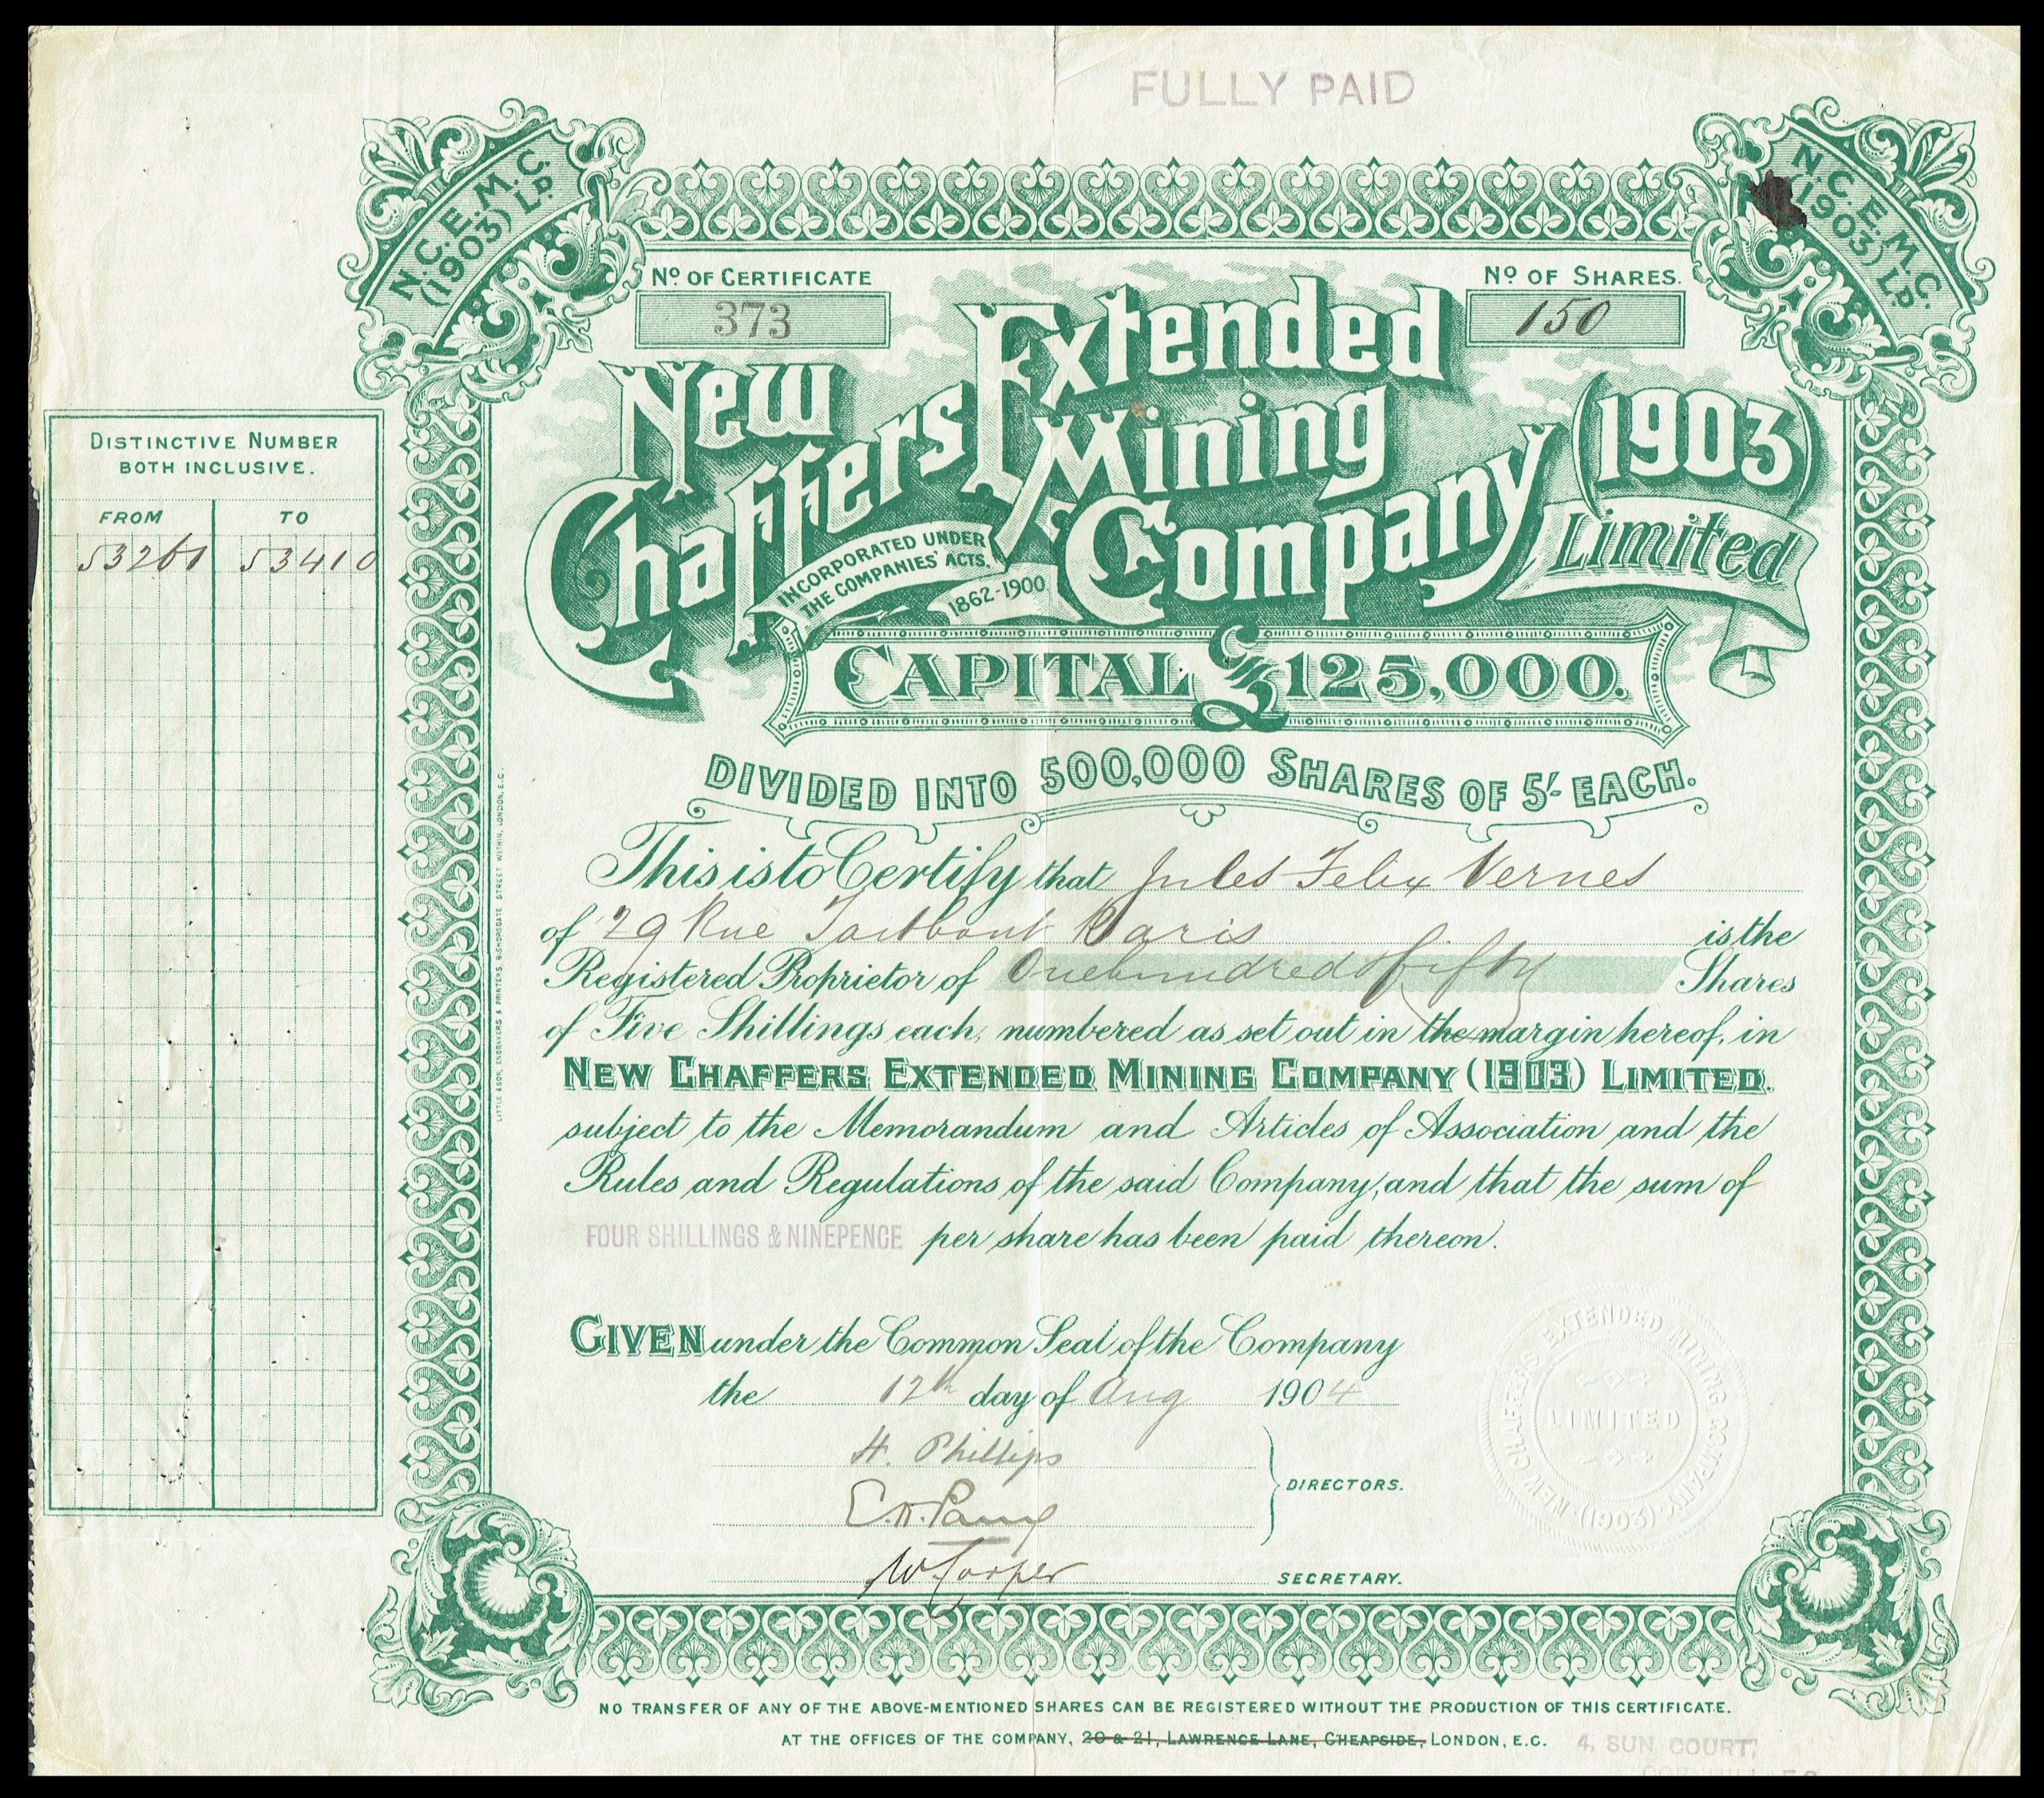 FULLY PAID
N.C.E.M.C.
(1903) LD.
N.C.E.M.C.
(1903) LD.
No OF CERTIFICATE
373
No OF SHARES.
150
New
Chaffers Extended
Mining
Company (1903)
Limited
INCORPORATED UNDER
THE COMPANIES' ACTS,
1862-1900
CAPITAL £125,000.
DIVIDED INTO 500,000 SHARES OF 5/- EACH.
DISTINCTIVE NUMBER
BOTH INCLUSIVE.
FROM TO
53261 53410
This is to Certify that Jules Felix Vernes
of 29 Rue Taitbout Paris is the
Registered Proprietor of One hundred & fifty Shares
of Five Shillings each, numbered as set out in the margin hereof, in
NEW CHAFFERS EXTENDED MINING COMPANY (1903) LIMITED.
subject to the Memorandum and Articles of Association and the
Rules and Regulations of the said Company, and that the sum of
FOUR SHILLINGS & NINEPENCE per share has been paid thereon.
GIVEN under the Common Seal of the Company
the 12th day of Aug 1904
H. Phillips
DIRECTORS.
W Cooper
SECRETARY.
NEW CHAFFERS EXTENDED MINING COMPANY (1903)
LIMITED
LITTLE & SON, ENGRAVERS & PRINTERS, BISHOPSGATE STREET WITHIN, LONDON, E.C.
NO TRANSFER OF ANY OF THE ABOVE-MENTIONED SHARES CAN BE REGISTERED WITHOUT THE PRODUCTION OF THIS CERTIFICATE.
AT THE OFFICES OF THE COMPANY, 20 & 21, LAWRENCE LANE, CHEAPSIDE, LONDON, E.C. 4, SUN COURT,